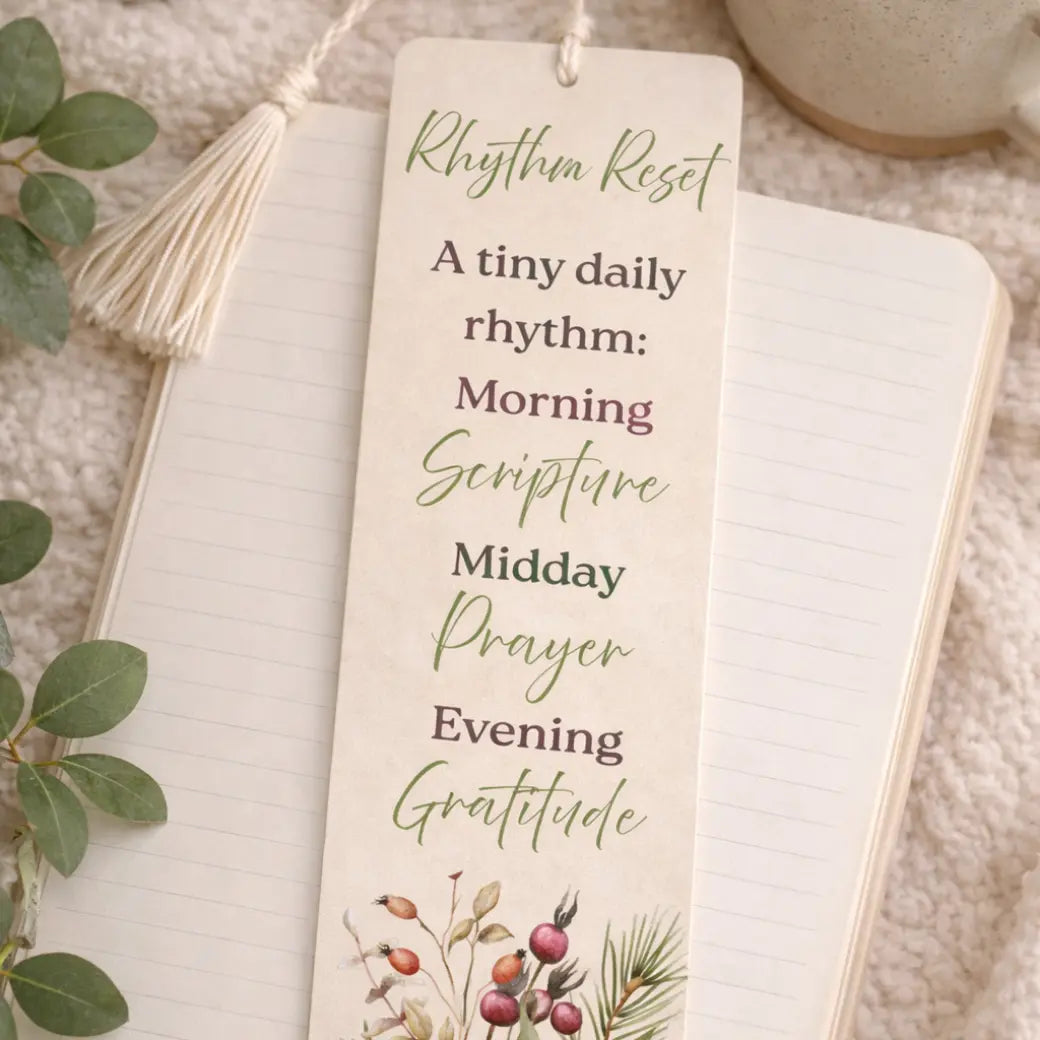 Rhythm Reset
A tiny daily
rhythm:
Morning
Scripture
Midday
Prayer
Evening
Gratitude